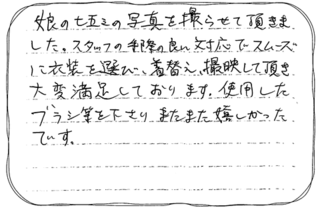 娘の七五三の写真を撮らせて頂きま
した。スタッフの手際の良い対応でスムーズ
に衣装を選び、着替え、撮映して頂き
大変満足しております。使用した
ブラシ等を下さり、またまた嬉しかった
です。